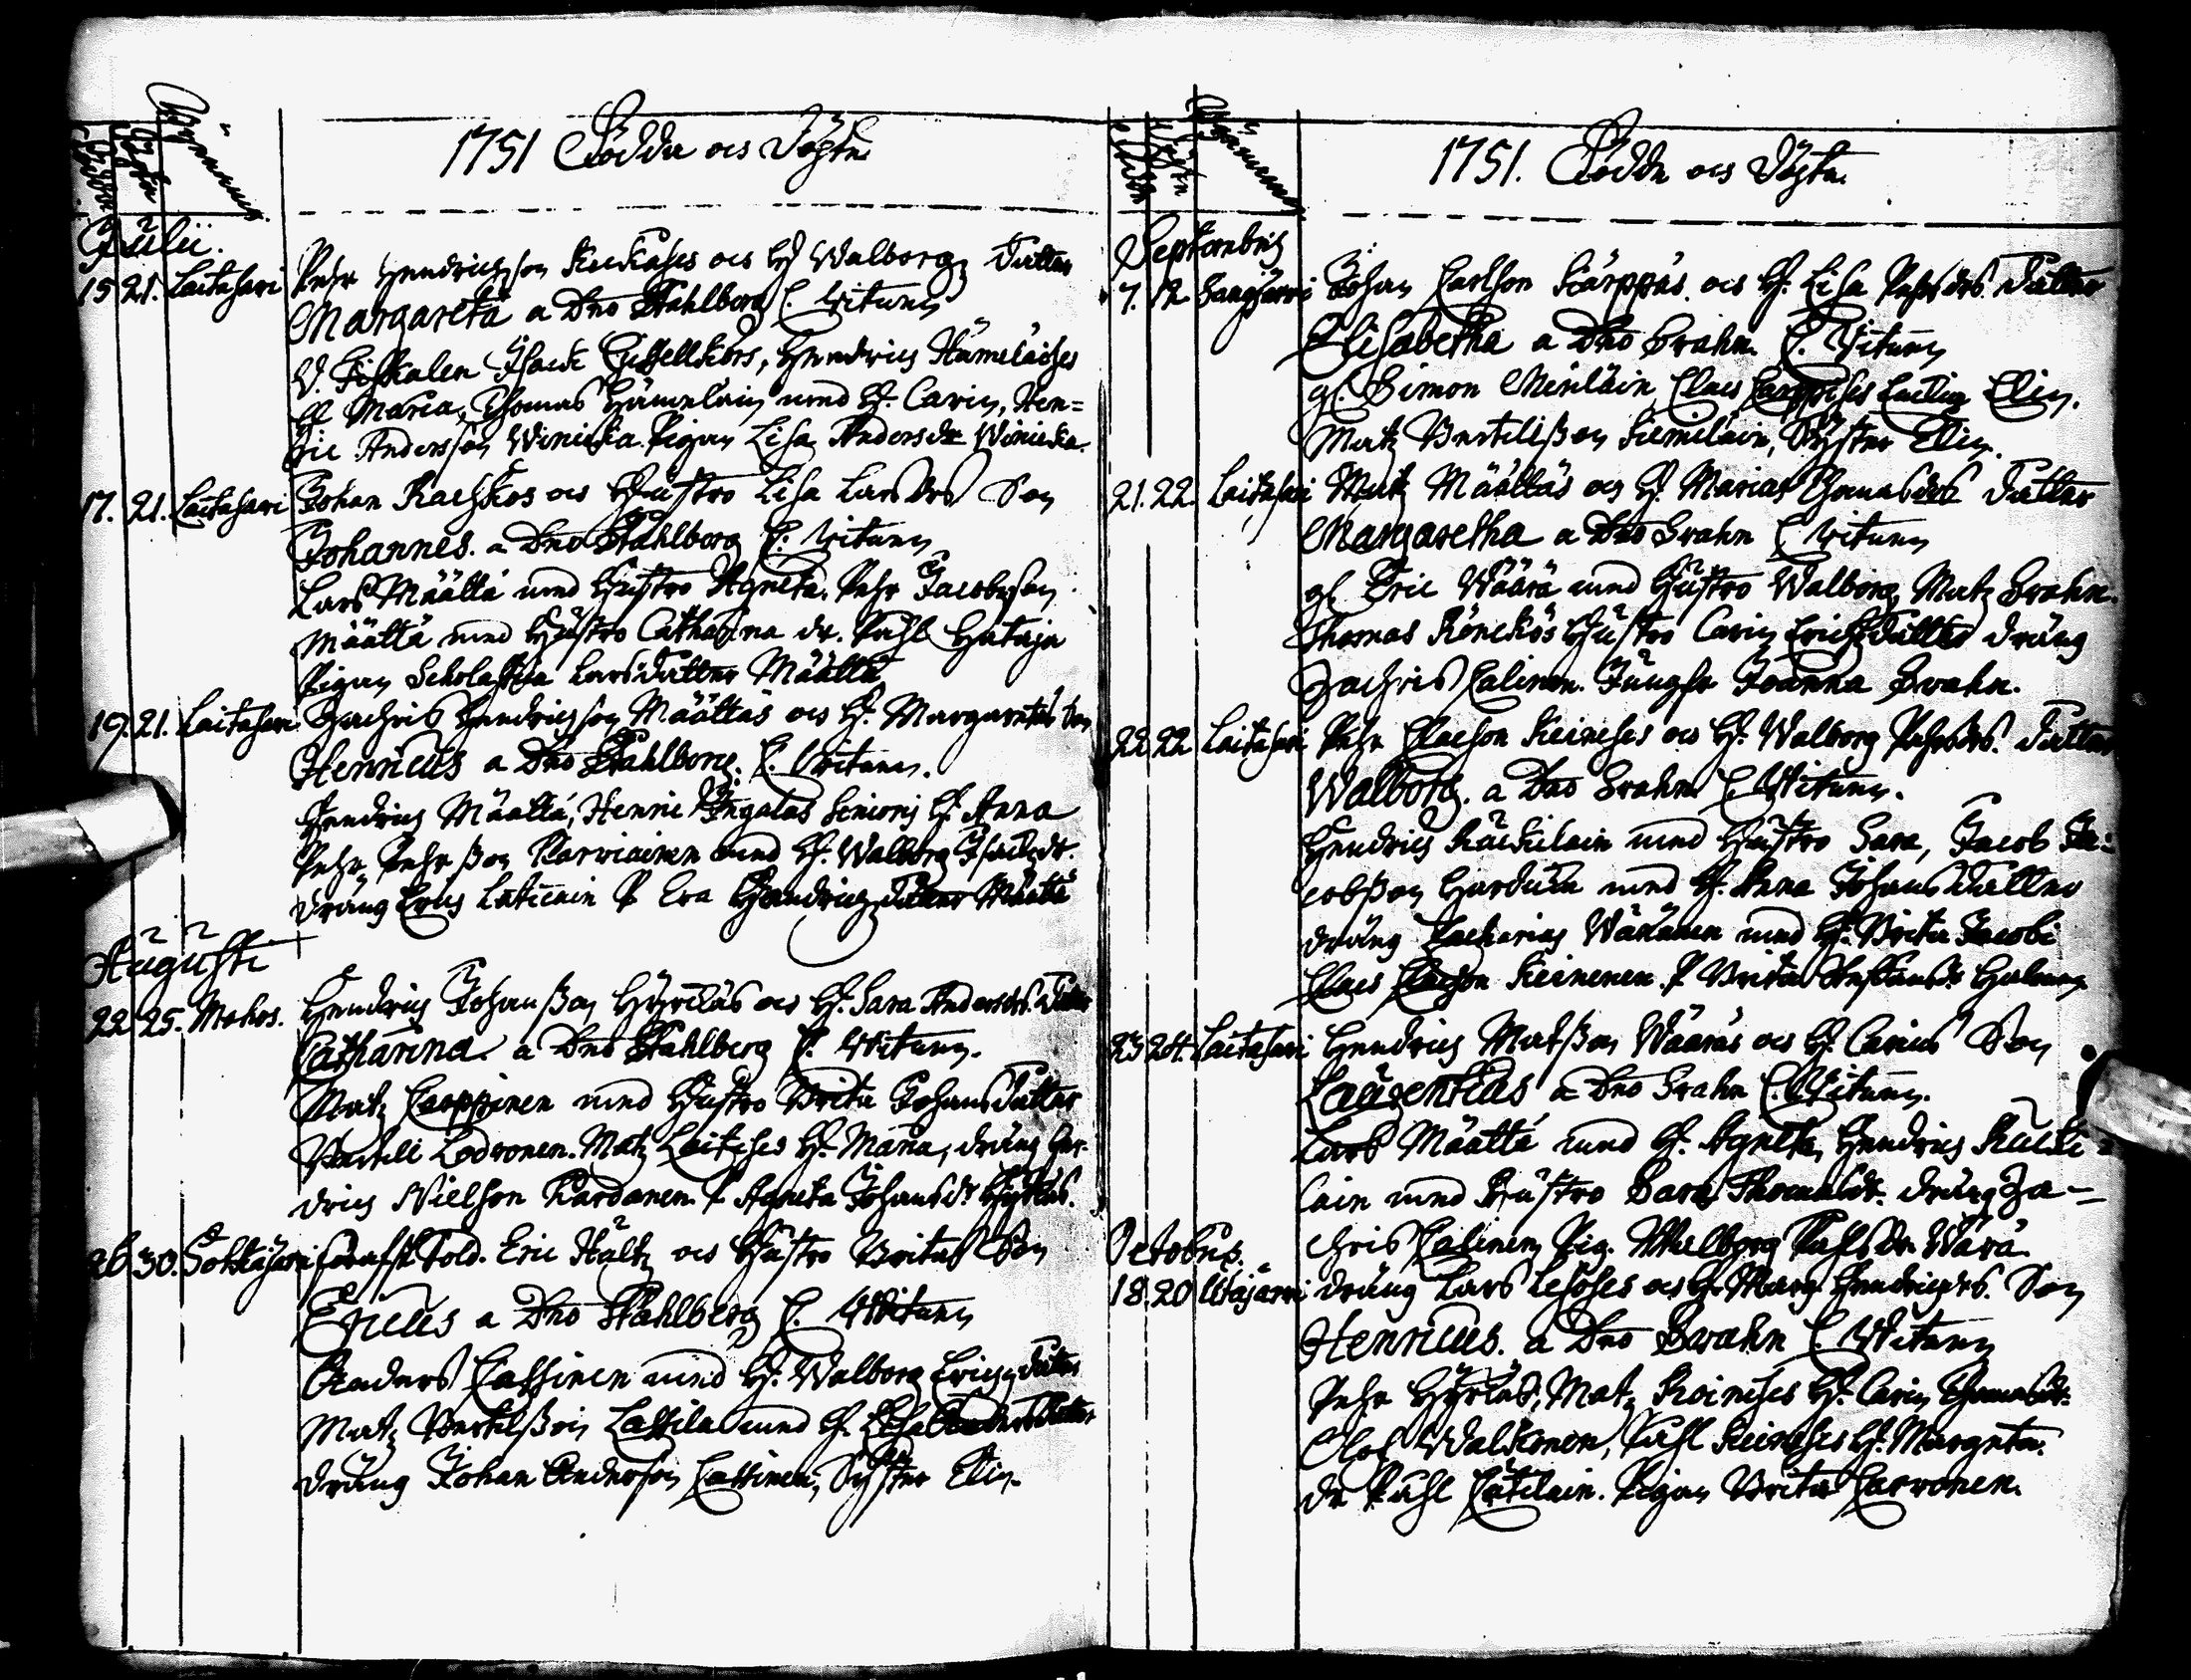 Födde
Döpte
Byarnas
1751 Födde och Döpte
Julii.
15 21. Laitasari Pehr Hendrichsson Keckoises och H Walborgz Dotter
Margareta a Dno Stahlberg C. Witnen
V. Fiskalen Isaack Hendrich Hämeläises
H. Maria, Thomas Hämeläin med H. Carin, Hen=
ric Andersson Winicka. Pigan Lisa Andersdr Winicka.
17. 21. Laitasari Johan Kaeskos och Hustro Lisa Larsdrs Son
Johannes. a Dno Stahlberg C. Witnen
Lars Määttä med Hustro Agneta. Pehr Jacobsson
Määttä med Hustro Catharina dr. Påhl Hataja
Pigan Scholastica Larsdotter Määttä
19. 21. Laitasari Zachris Hendricsson Määttäs och H. Margaretas Son
Henricus a Dno Stahlberg. C. Witnen.
Hendrich Määttä, Henric Ingalas Senioris H. Anna
Pehr Pehrsson Karwiainen med H. Walborg Isachsdr.
dräng Erich Laticain P Eva Hendrichsdotter Määttä
Augusti
22 25. Mohos. Hendrich Johansson Hyrckäs och H. Sara Andersdrs. Dotter
Catharina. a Dno Stahlberg C. Witnen.
Matz Karppinen med Hustro Brita Johansdotter
Bertell Lodronen. Matz Laitises H. Maria, dräng Hen-
drich Nielsson Kardanen. P Agneta Johansdr Hyrckäs.
26. 30. Sotkajärvi Sold. Eric Stältz och Hustro Britas Son
Ericus a Dno Stahlberg C. Witnen
Anders Cassinen med H. Walborg Erichsdotter
Matz Bertilsson Lassila med H. Lisa Andersdotter
dräng Johan Andersson Cassinen, Syster Elin.
Födde
Döpte
Byarnas
1751. Födde och Döpte.
Septembris
7. 12 Sangjärvi Johan Carlsson Kärppäs. och H. Lisa Pehrsdrs. Dotter
Elisabetha a Dno Brahn C. Witnen
gl. Simon Meriläin, Claes Elin.
Matz Bertilsson Kemiläin, Syster Elin.
21. 22. Laitasari Matz Määttäs och H. Marias Thomasdrs Dotter
Margaretha a Dno Brahn C. Witnen
gl Eric Wäärä med Hustro Walborg, Matz Brahn.
Thomas Rönckös Hustro Carin Erichsdotter dräng
Zachris Calinen. Jungfr Joanna Brahn.
22 22 Laitasari Pehr Claesson Keineses och H. Walborg Pehrsdrs. Dotter
Walborg. a Dno Brahn C. Witnen.
Hendrich Räckiläin med Hustro Sara, Jacob Ja=
cobsson Harduin med H. Anna Johansdotter
dräng Zacharias Wäränen med H. Brita Jacobi
Claes Claesson Keinenen. P Brita Halonen
23 24. Laitasari Hendrich Matsson Wääräs och H. Carins Son
Laurentius a Dno Brahn C. Witnen.
Lars Määttä med H. Agneta, Hendrich Räcki=
läin med Hustro Sara Thomasdr. dräng Za=
chris Calinen, Pig. Walborg Påhlsdr. Wärä.
Octobris.
18. 20 Utajärvi dräng Lars Lesoses och H. Marg. Hendrichsdrs. Son
Henricus. a Dno Brahn C. Witnen
Pehr Hyrckäs, Matz Keineses H. Carin Thomasdr.
Olof Walckonen, Påhl Keineses H. Margreta.
dr Påhl Cätiläin. Pigan Brita Carvonen.